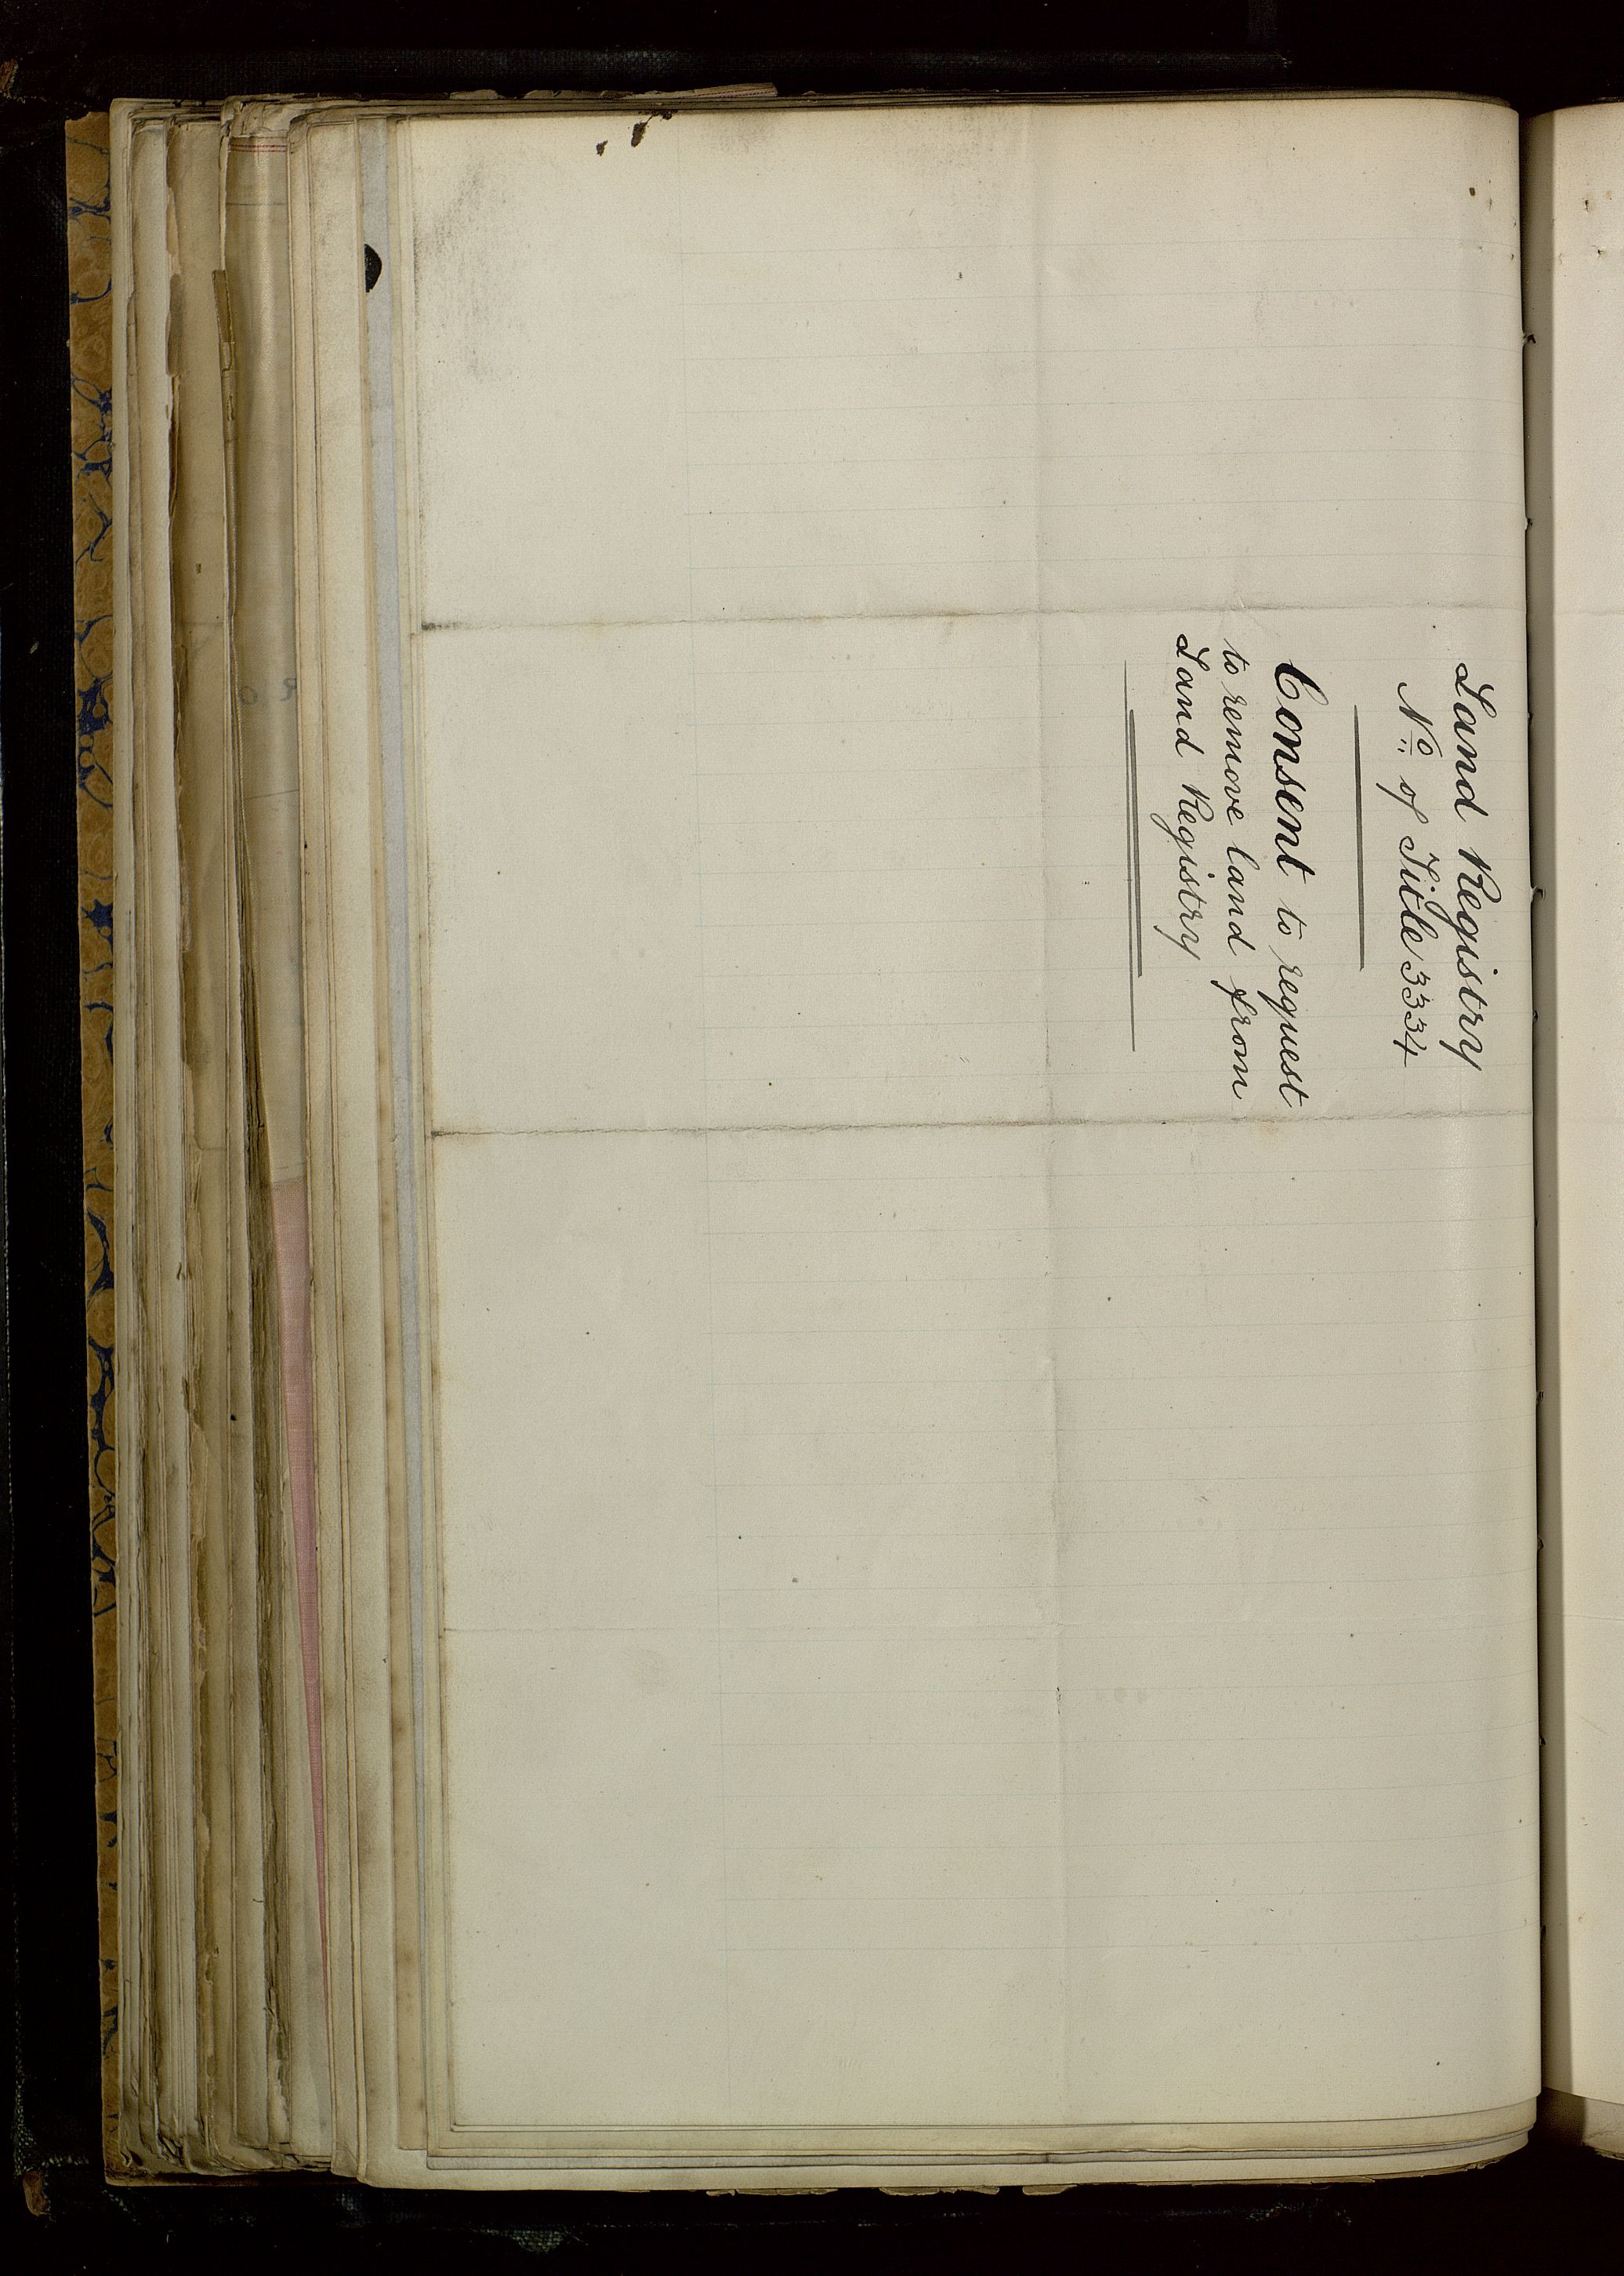 Land Registry
No. of Title 3334
Consent to request
to remove land from
Land Registry